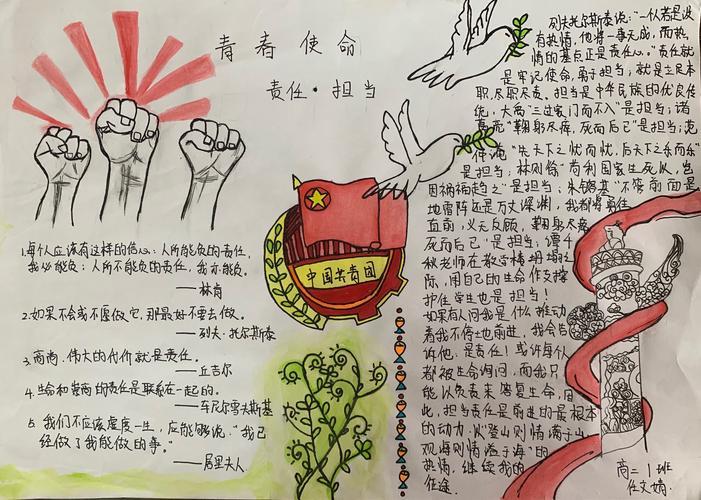 青春使命
责任·担当
1.每个人应该有这样的信心:人所能负的责任,
我必能负;人所不能负的责任,我亦能负。
——林肯
2.如果不会或不愿做它,那最好不要去做。
——列夫·托尔斯泰
3.高尚、伟大的代价就是责任。
——丘吉尔
4.生命和崇高的责任是联系在一起的。
——车尼尔雪夫斯基
5.我们不应该虚度一生,应能够说:“我已
经做了我能做的事。”
——居里夫人
中国共青团
列夫托尔斯泰说:“一个人若是没
有热情,他将一事无成,而热
情的基点正是责任心。”责任就
是牢记使命,勇于担当,就是立足本
职,尽职尽责。担当是中华民族的优良传
统,大禹“三过家门而不入”是担当;诸
葛亮“鞠躬尽瘁,死而后已”是担当;范
仲淹“先天下之忧而忧,后天下之乐而乐”
是担当;林则徐“苟利国家生死以,岂
因祸福趋避之”是担当;朱镕基“不管前面是
地雷阵还是万丈深渊,我都将勇往
直前,义无反顾,鞠躬尽瘁,
死而后已”是担当;谭千
秋老师在教学楼坍塌之
际,用自己的生命作支撑
护住学生也是担当!
如果有人问我是什么推动
着我不停地前进,我会告
诉他,是责任!或许每个人
都被生命询问,而我只
能以负责来答复生命,因
此,担当责任是前进的最根本
的动力。以登山则情满于山,
观海则情溢于海”的
热情,继续我的
征途。
高二1班
任文婧